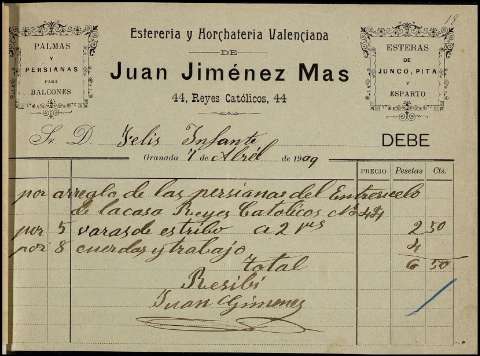 18
Estereria y Horchateria Valenciana
DE
Juan Jiménez Mas
44, Reyes Católicos, 44
PALMAS
Y
PERSIANAS
PARA
BALCONES
ESTERAS
DE
JUNCO, PITA
Y
ESPARTO
Sr. D. Felis Infante
DEBE
Granada 7 de Abril de 1909
PRECIO Pesetas Cts.
por arreglo de las persianas del Entresuelo
de la casa Reyes Catolicos Nº
por 5 varas de estribo a 2 rs 2 50
por 8 cuerdas y trabajo 4
total 6 50
Resibi
Juan Gimenez